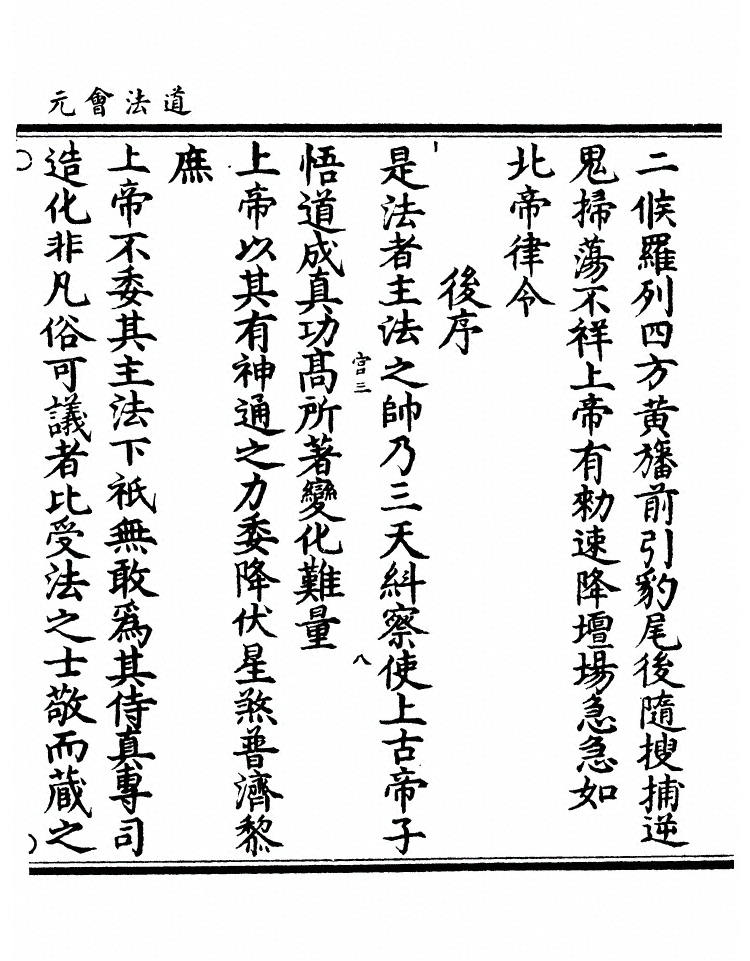 道法會元
二候羅列四方黄旛前引豹尾後隨搜捕逆
鬼掃蕩不祥上帝有勑速降壇場急急如
北帝律令
後序
是法者主法之帥乃三天糾察使上古帝子
宫三
八
悟道成真功高所著變化難量
上帝以其有神通之力委降伏星煞普濟黎
庶
上帝不委其主法下祇無敢爲其侍真專司
造化非凡俗可議者比受法之士敬而藏之